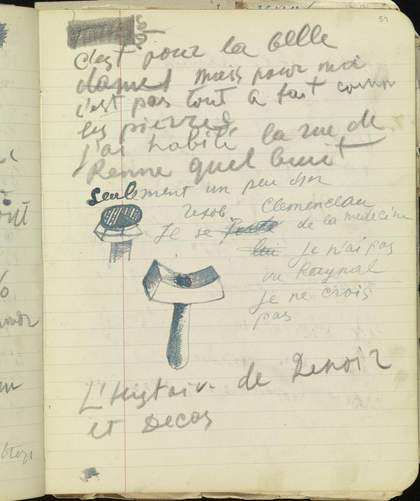 51
c'est pour la belle
dames mais pour moi
c'est pas tout à fait comm
les pierres
j'ai habité la rue de
Renne quel bruit
Seulement un peu cher
Clemenceau
Je se de la medecine
lui je n'ai pas
vu Raynal
je ne crois
pas
L'histoir de Renoir
et Degas